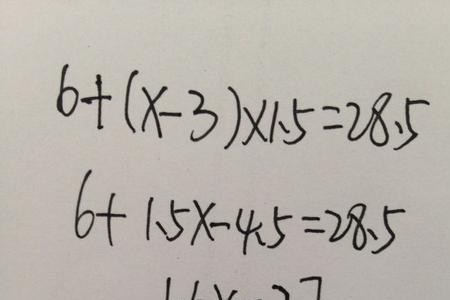 6+(x-3)×1.5=28.5
6+1.5x-4.5=28.5